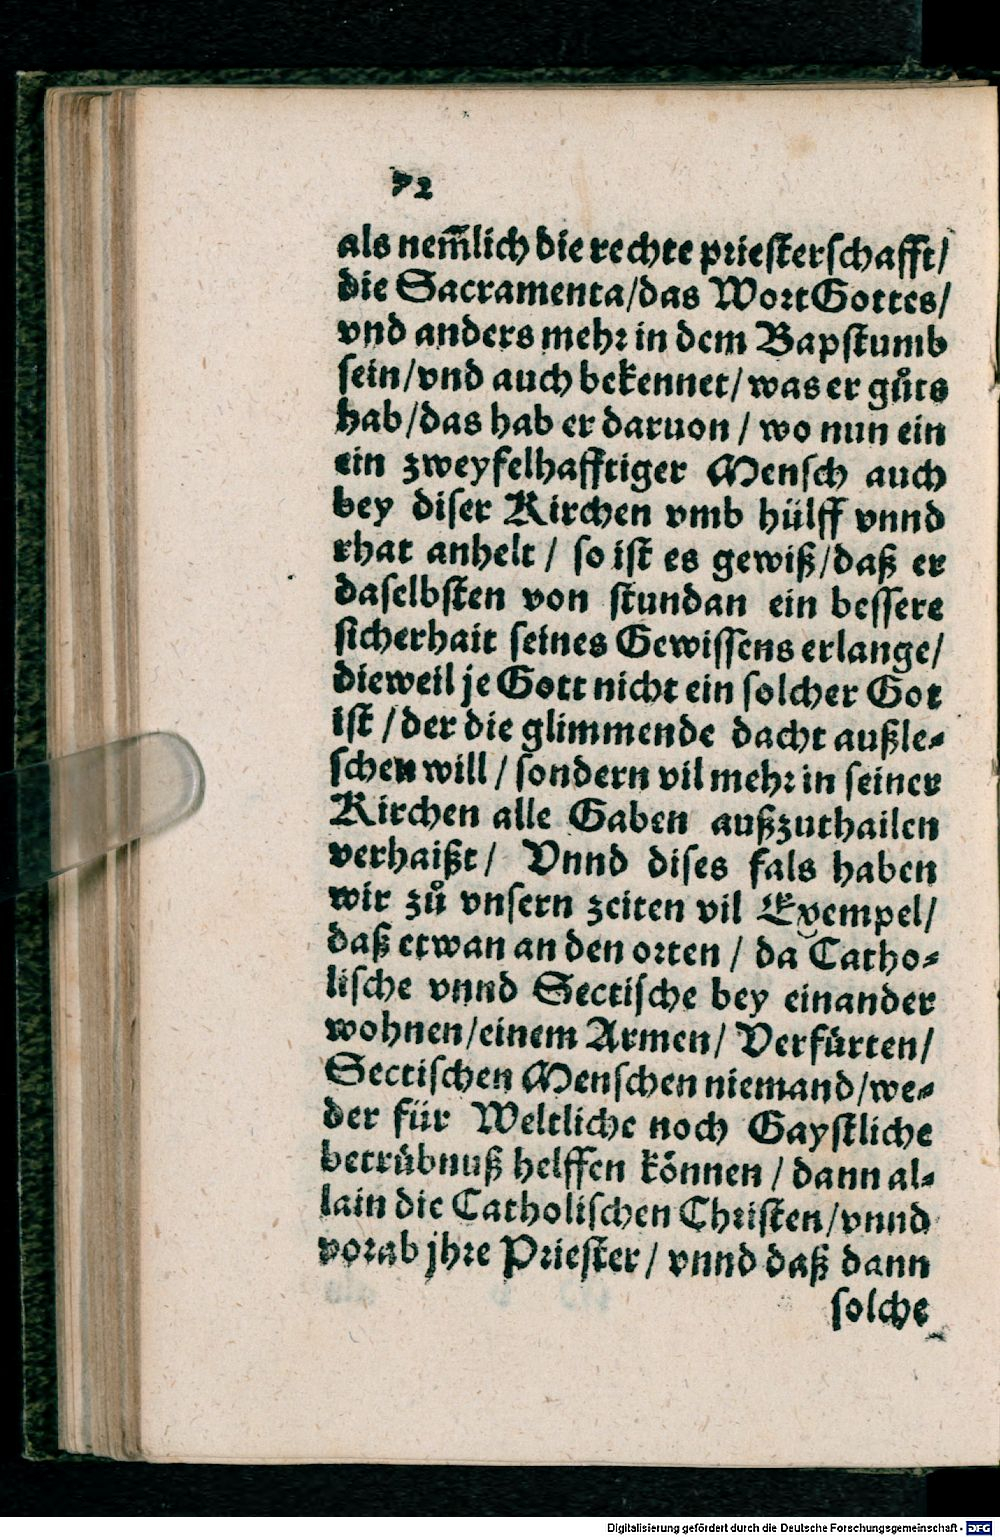 72
als nem̃lich die rechte priesterschafft/
die Sacramenta/das Wort Gottes/
vnd anders mehr in dem Bapstumb
sein/vnd auch bekennet/was er gůts
hab/das hab er daruon/wo nun ein
ein zweyfelhafftiger Mensch auch
bey diser Kirchen vmb hülff vnnd
rhat anhelt/ so ist es gewiß/daß er
daselbsten von stundan ein bessere
sicherhait seines Gewissens erlange/
dieweil je Gott nicht ein solcher Got
ist/der die glimmende dacht außle-
schen will/sondern vil mehr in seiner
Kirchen alle Gaben außzuthailen
verhaißt/ Vnnd dises fals haben
wir zů vnsern zeiten vil Exempel/
daß etwan an den orten/ da Catho-
lische vnnd Sectische bey einander
wohnen/einem Armen/ Verfürten/
Sectischen Menschen niemand/we-
der für Weltliche noch Gaystliche
betrübnuß helffen können/dann al-
lain die Catholischen Christen/vnnd
vorab jhre Priester/ vnnd daß dann
solche
Digitalisierung gefördert durch die Deutsche Forschungsgemeinschaft - DFG